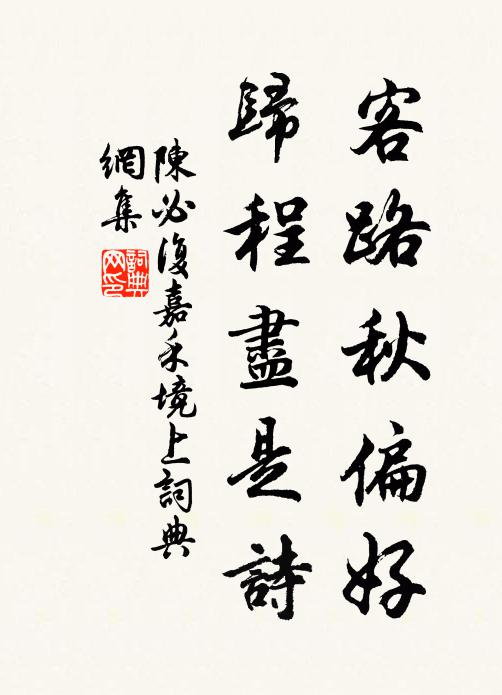 客路秋偏好
歸程盡是詩
陳必復嘉禾境上詞典
網集
詞典
网印